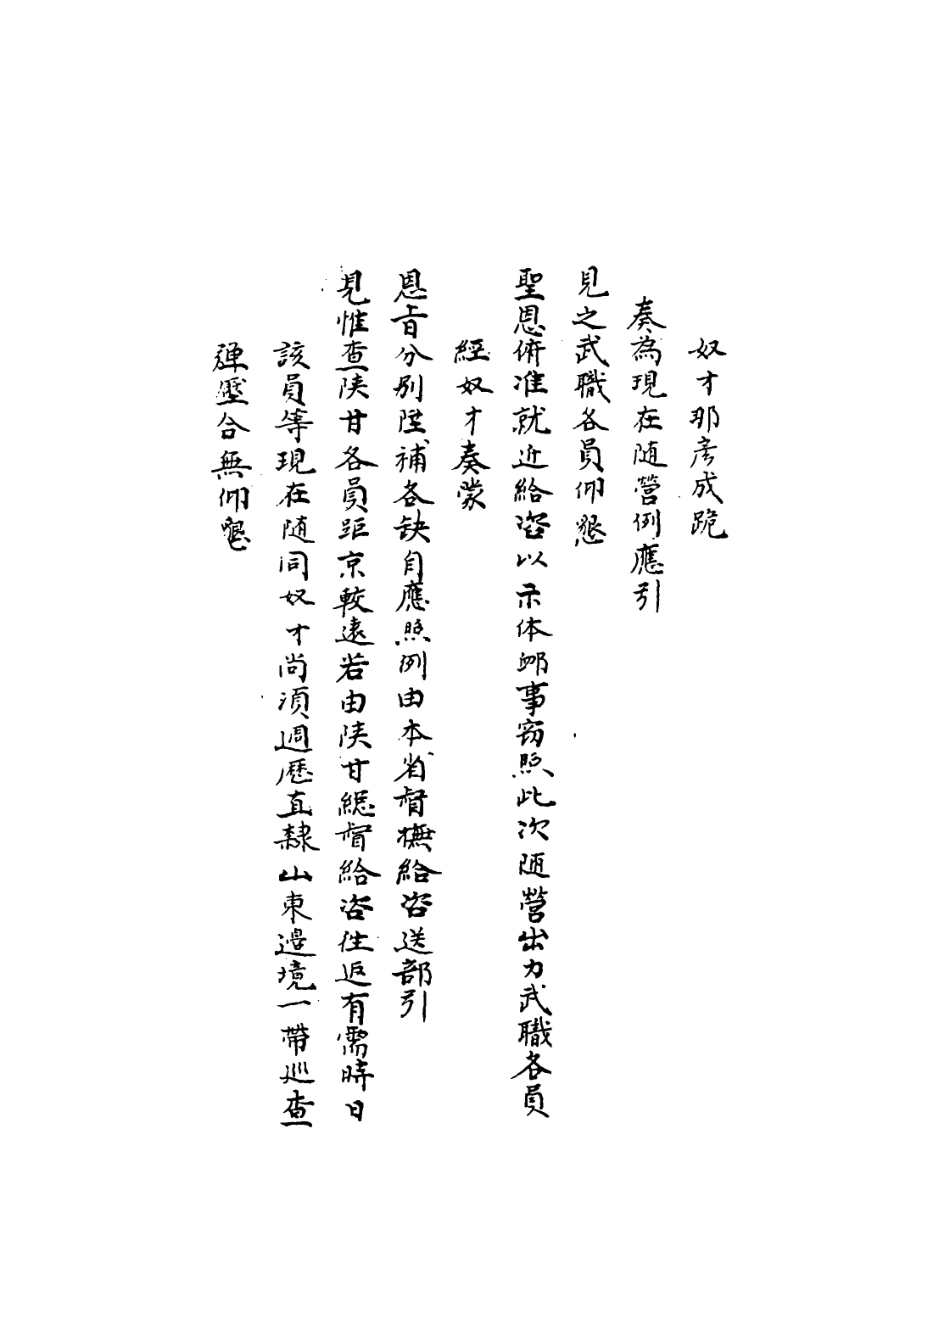 奴才那彦成跪
奏為現在随營例應引
見之武職各員仰懇
聖恩俯准就近給咨以示体卹事窃照此次随營出力武職各員
經奴才奏蒙
恩旨分别陞補各缺自應照例由本省督撫給咨送部引
見惟查陕甘各員距京較遠若由陕甘總督給咨往返有需時日
該員等現在随同奴才尚須週歷直隸山東邉境一帶巡查
弹壓合無仰懇